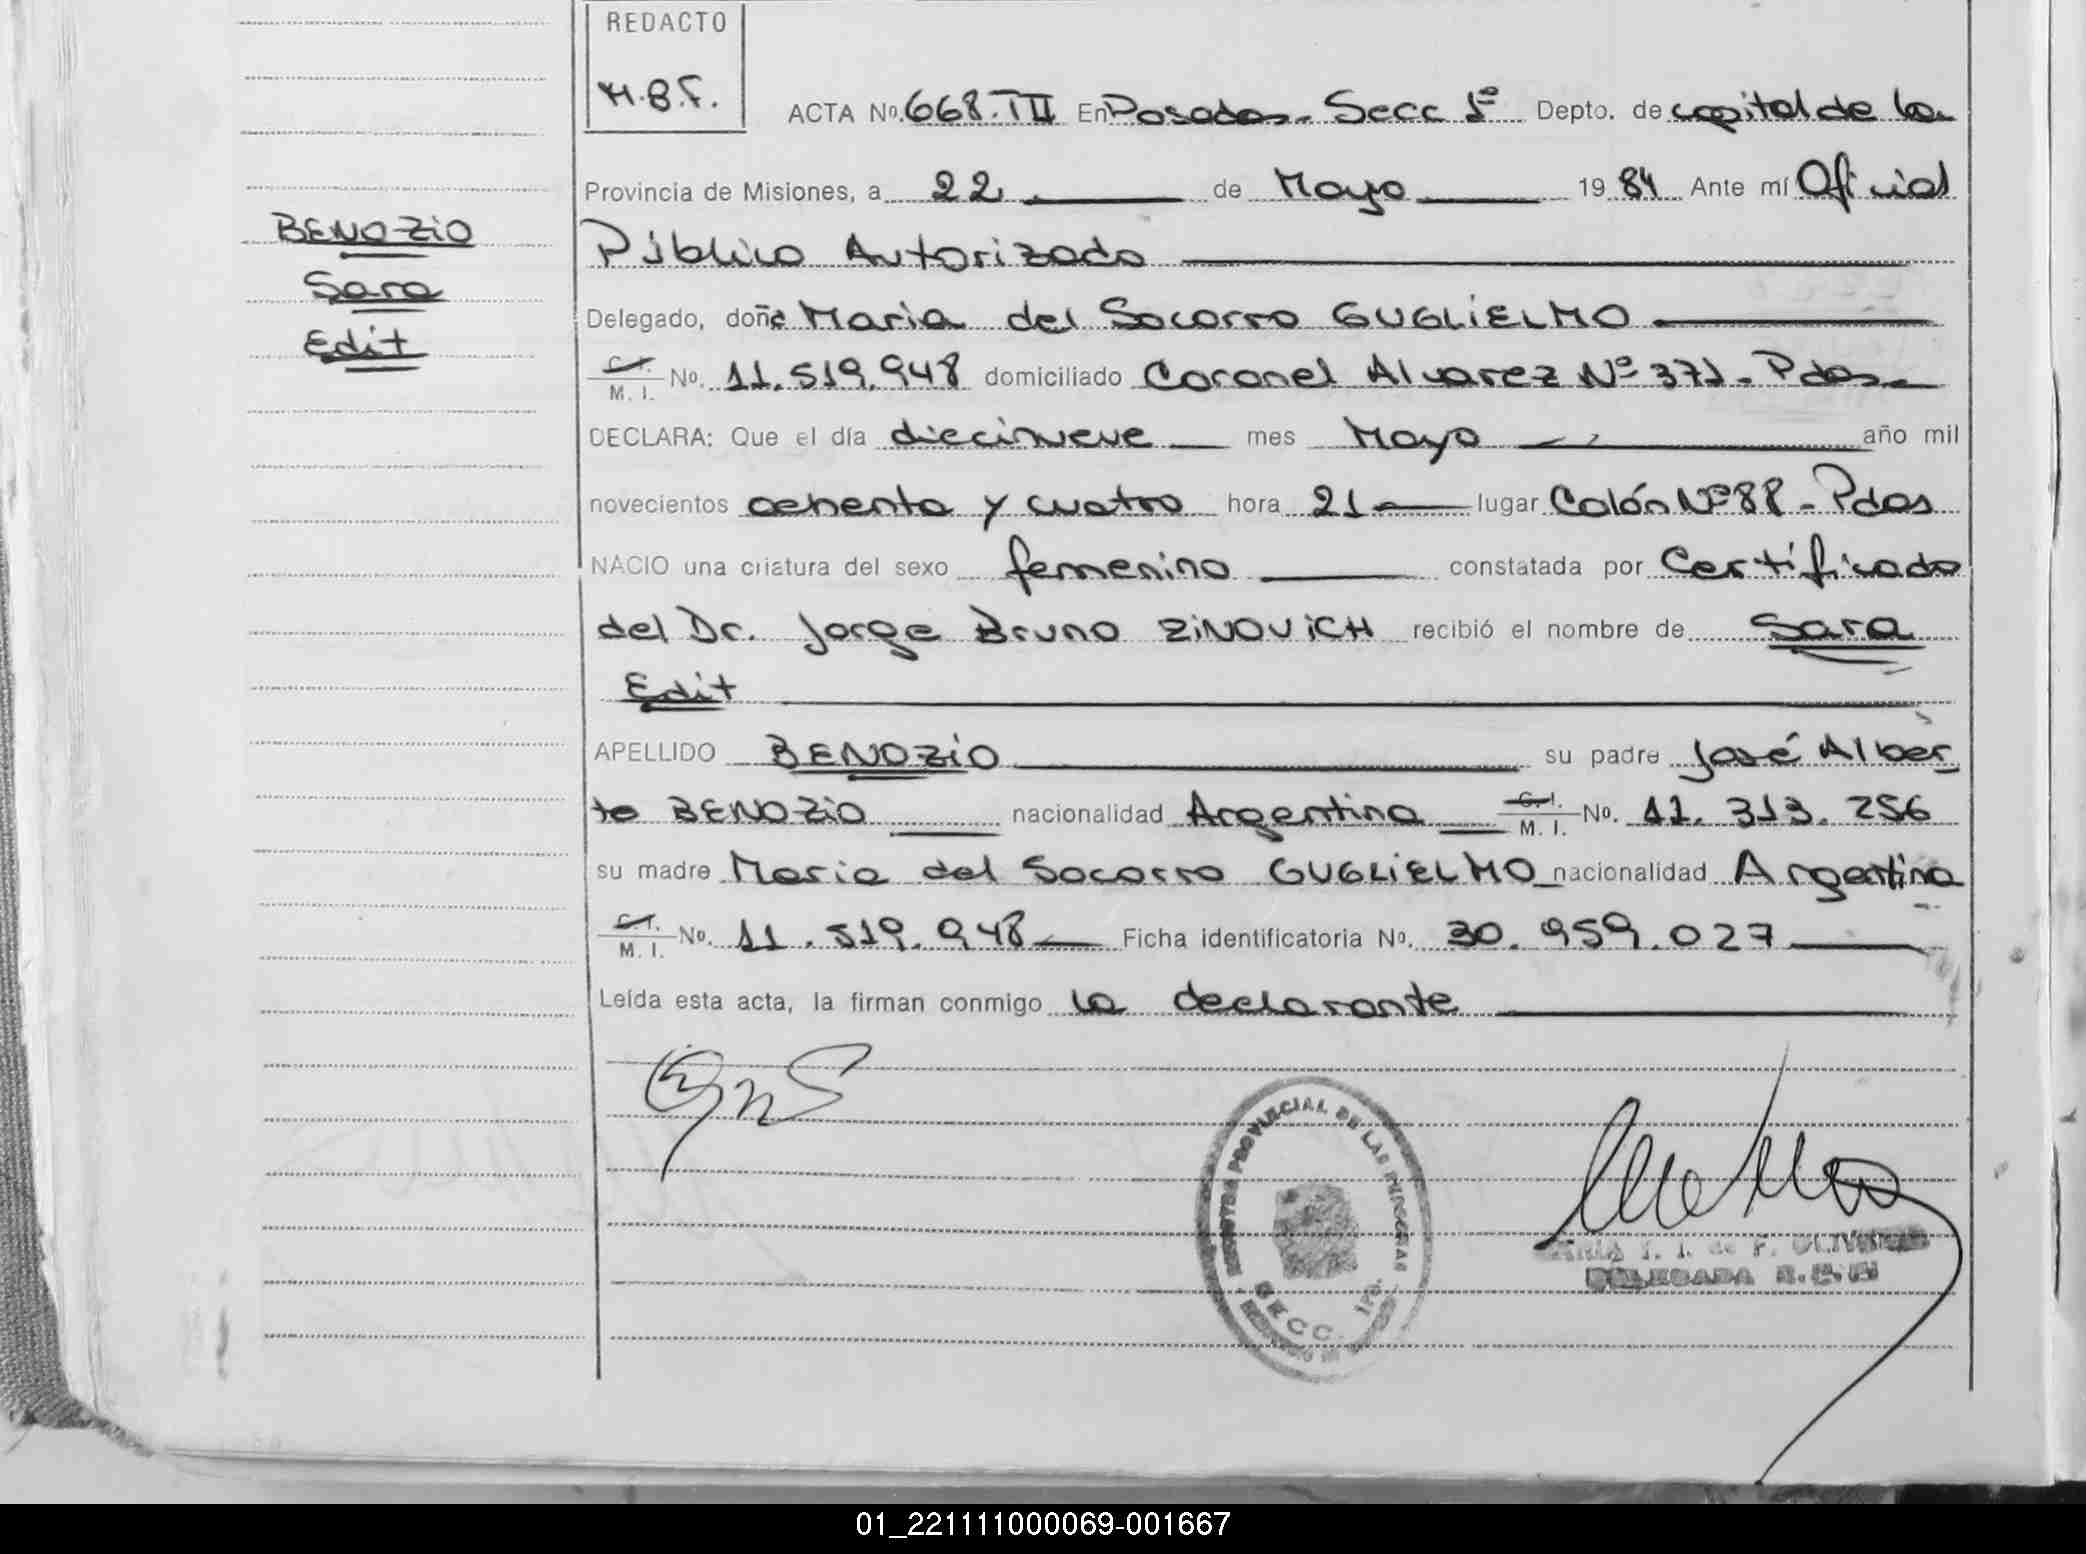 REDACTO
M.B.F.
ACTA Nº. 668. TIII En Posadas. Secc 1º Depto. de capital de la
Provincia de Misiones, a 22 de Mayo 19 84 Ante mí Oficial
Público Autorizado
Delegado, doña Maria del Socorro GUGLIELMO
C.I. M. I. No. 11.519.948 domiciliado Coronel Alvarez Nº 371. Pdas
DECLARA: Que el día diecinueve mes Mayo año mil
novecientos ochenta y cuatro hora 21 lugar Colón Nº 88 - Pdas
NACIO una criatura del sexo femenino constatada por Certificado
del Dr. Jorge Bruno ZINOVICH recibió el nombre de Sara
Edit
APELLIDO BENOZIO su padre José Alber
to BENOZIO nacionalidad Argentina C.I. M. I. No. 11. 313. 256
su madre Maria del Socorro GUGLIELMO nacionalidad Argentina
C.I. M. I. No. 11. 519. 948 Ficha identificatoria No. 30. 959. 027
Leída esta acta, la firman conmigo la declarante
BENOZIO
Sara
Edit
REGISTRO PROVINCIAL DE LAS PERSONAS
SECC. 1RA.
DELEGADA R.P.P.
01_221111000069-001667